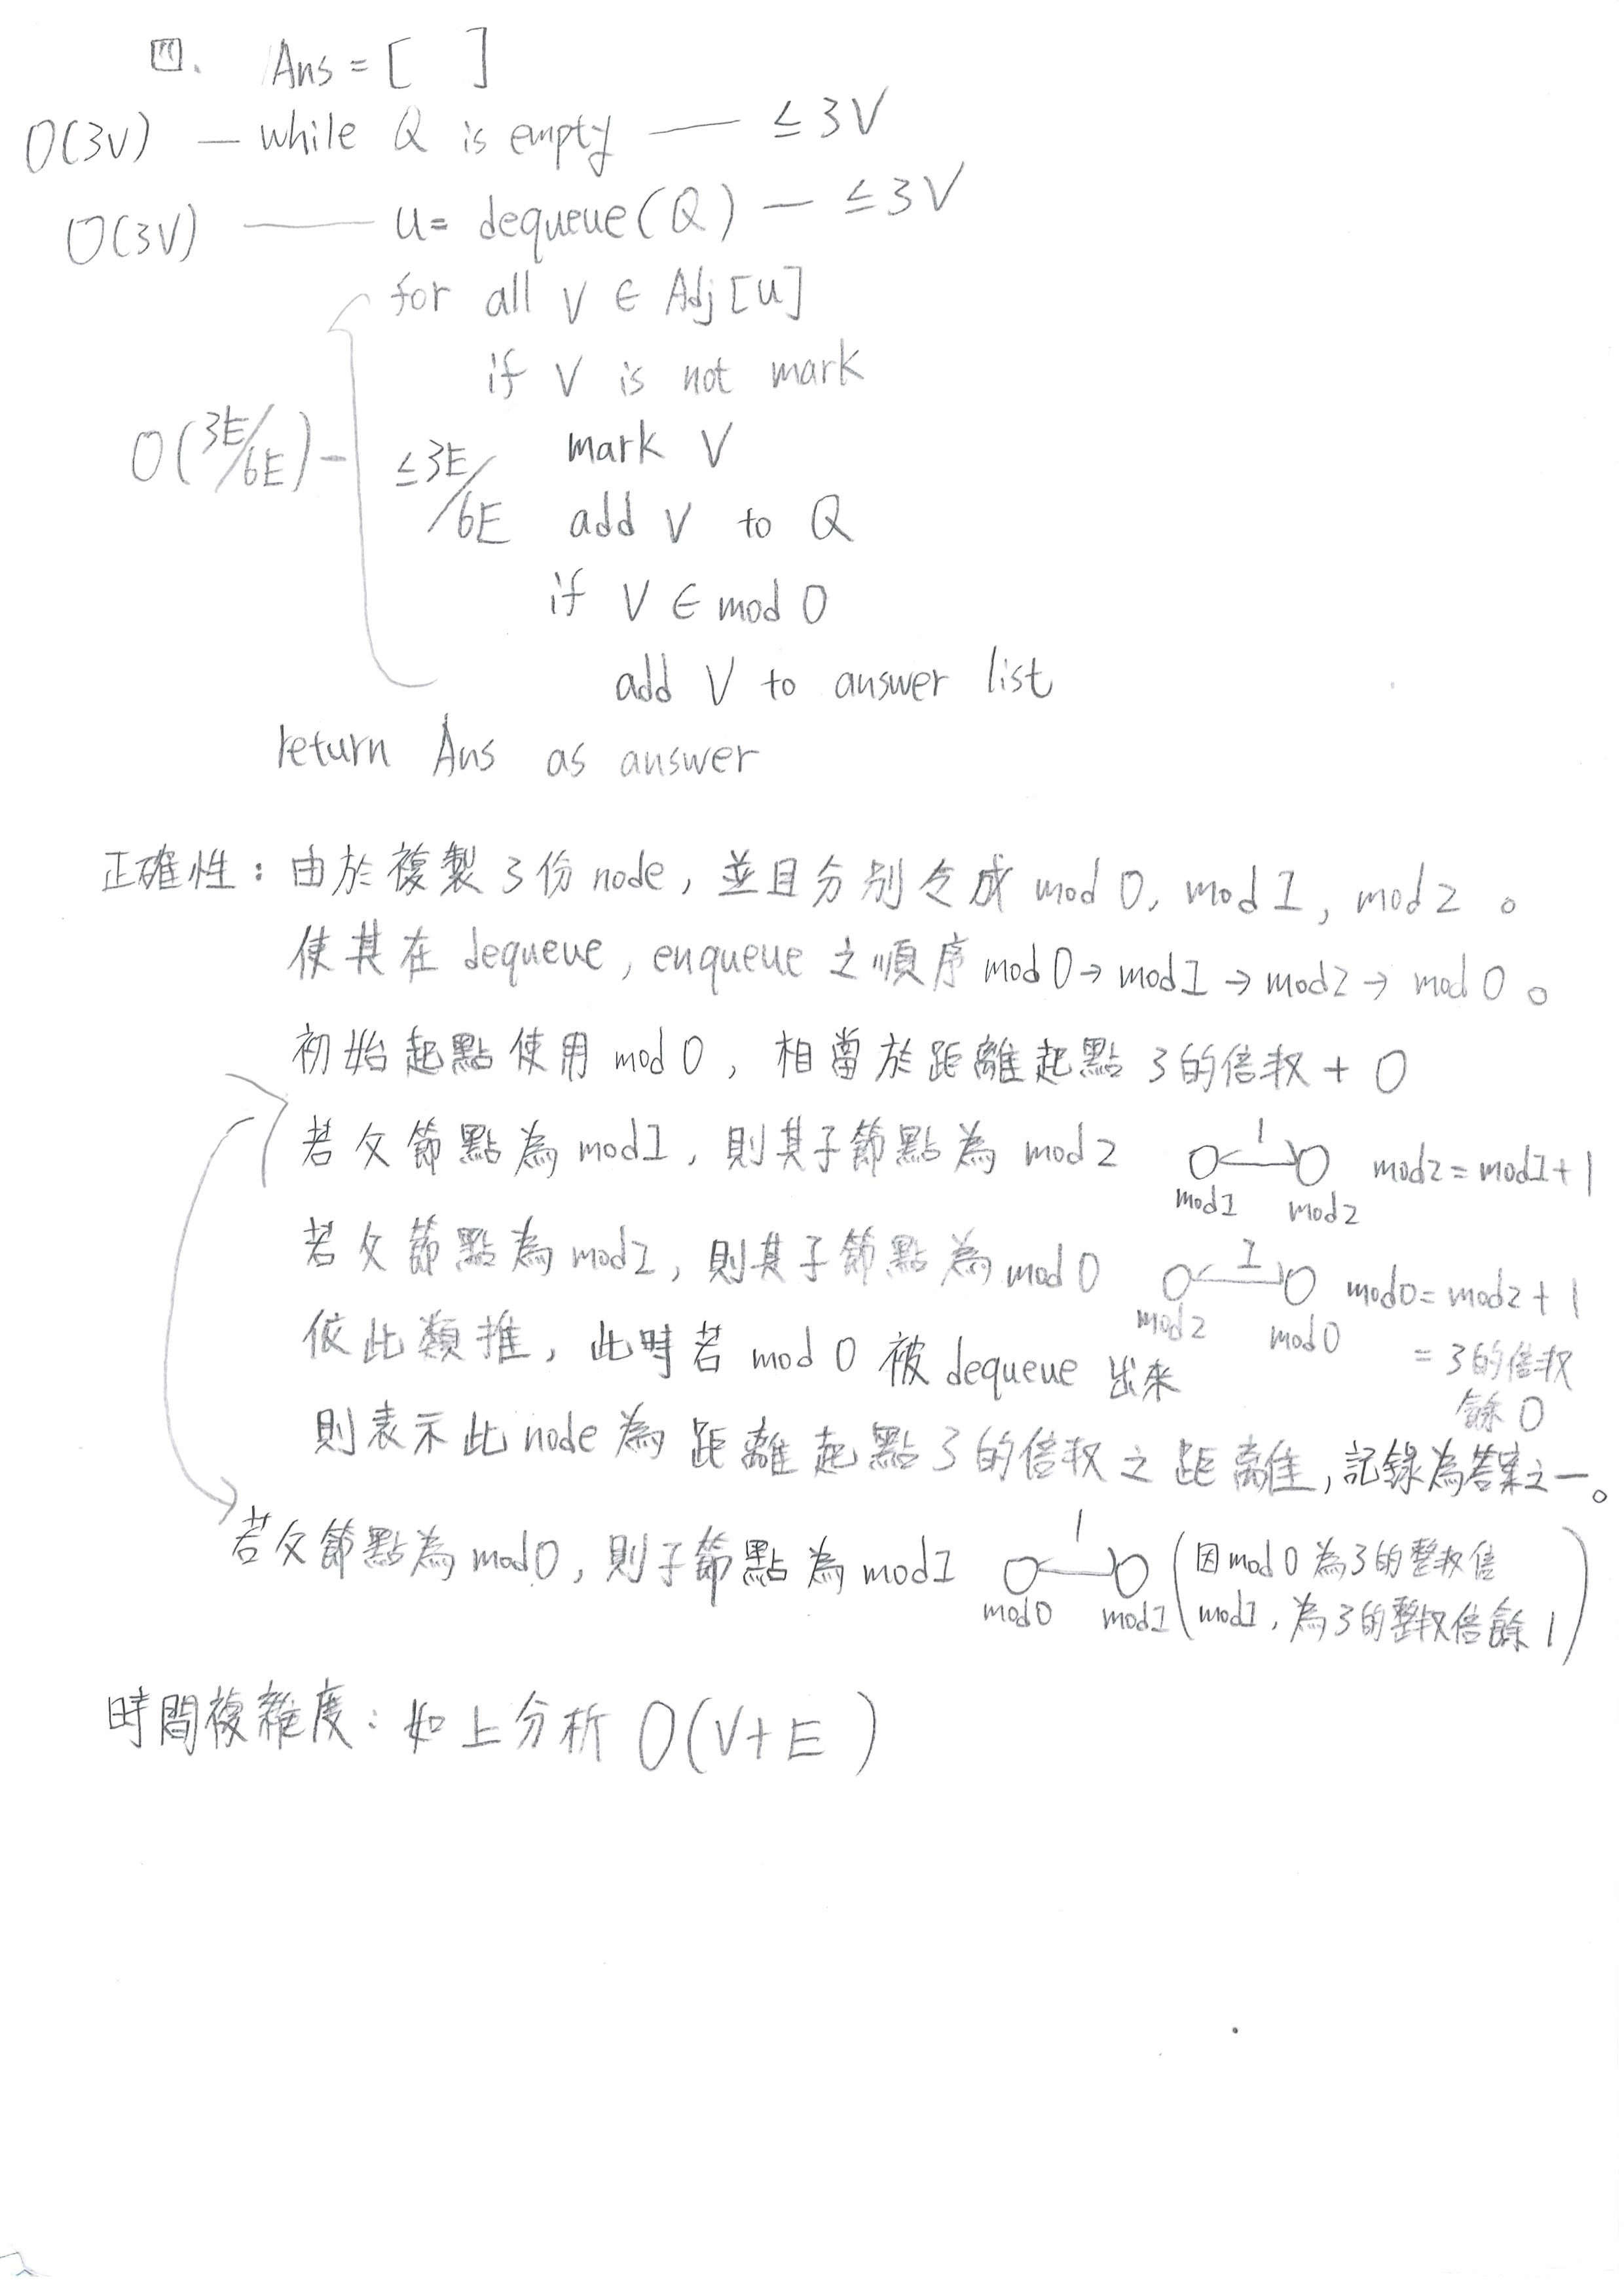 四. Ans = [ ]
O(3V) — while Q is empty — ≤ 3V
O(3V) — u = dequeue(Q) — ≤ 3V
for all V ∈ Adj[u]
if V is not mark
O(3E/6E) — ≤ 3E/6E mark V
add V to Q
if V ∈ mod 0
add V to answer list
return Ans as answer
正確性：由於複製3份node, 並且分別令成 mod 0, mod 1, mod 2 。
使其在 dequeue, enqueue 之順序 mod 0 → mod 1 → mod 2 → mod 0 。
初始起點使用 mod 0, 相當於距離起點 3的倍数 + 0
若父節點為 mod 1, 則其子節點為 mod 2 1 mod 1 mod 2 mod 2 = mod 1 + 1
若父節點為 mod 2, 則其子節點為 mod 0 1 mod 2 mod 0 mod 0 = mod 2 + 1
= 3的倍数
餘 0
依此類推, 此時若 mod 0 被 dequeue 出來
則表示此 node 為 距離起點 3 的倍数之距離, 記錄為答案之一。
若父節點為 mod 0, 則子節點為 mod 1 1 mod 0 mod 1 (因 mod 0 為3的整数倍
mod 1, 為3的整数倍餘 1)
時間複雜度：如上分析 O(V+E)